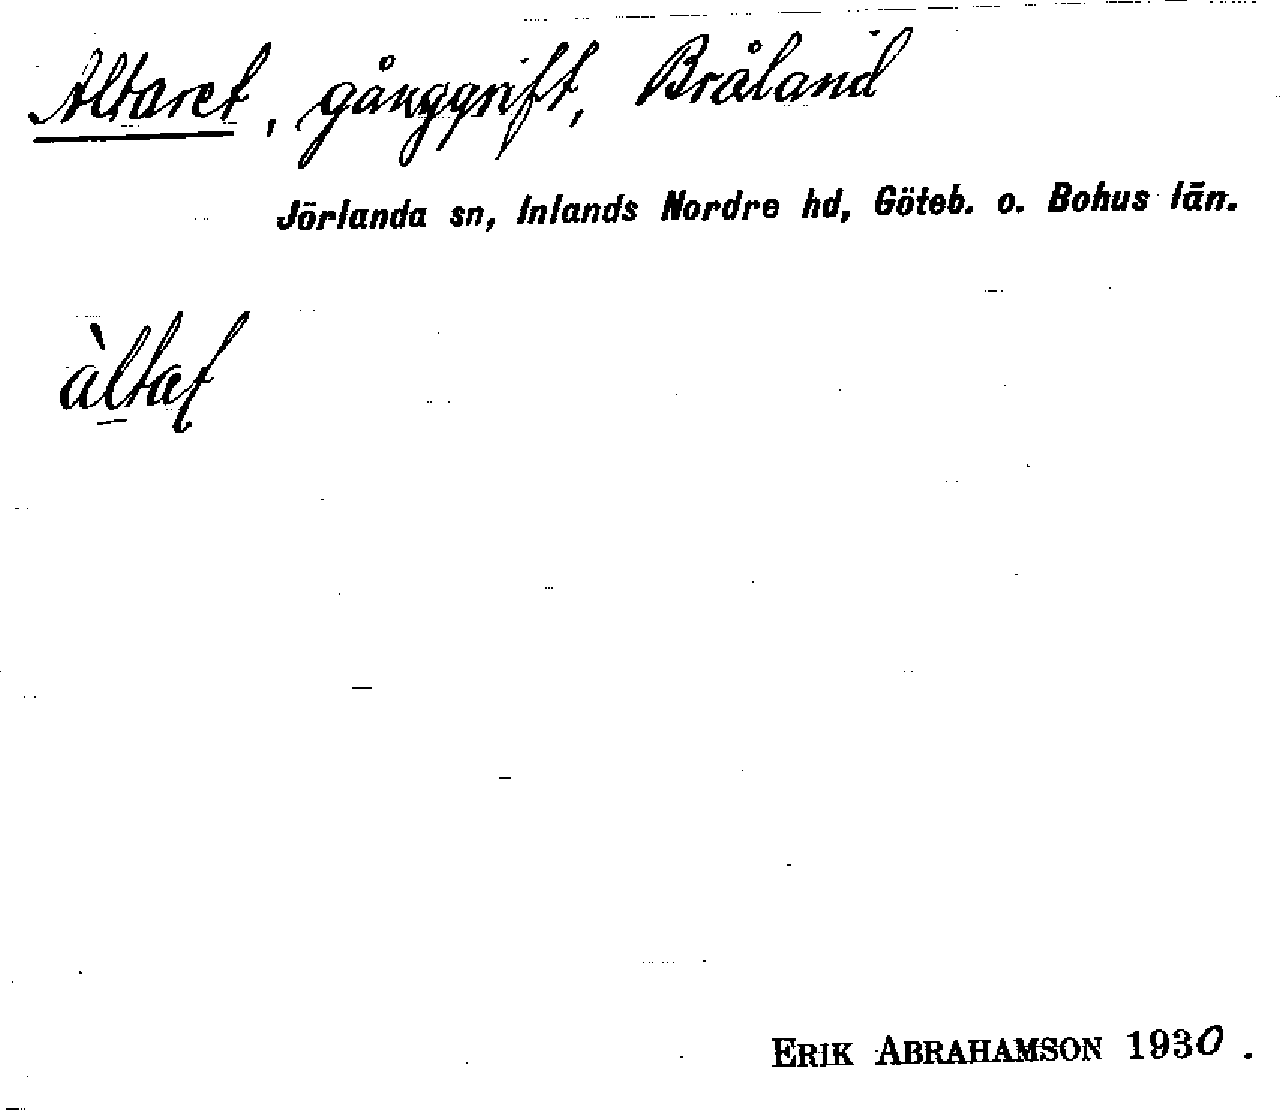 Altaret, gånggrift, Bråland
Jörlanda sn, Inlands Nordre hd, Göteb. o. Bohus län.
àltat
ERIK ABRAHAMSON 1930.